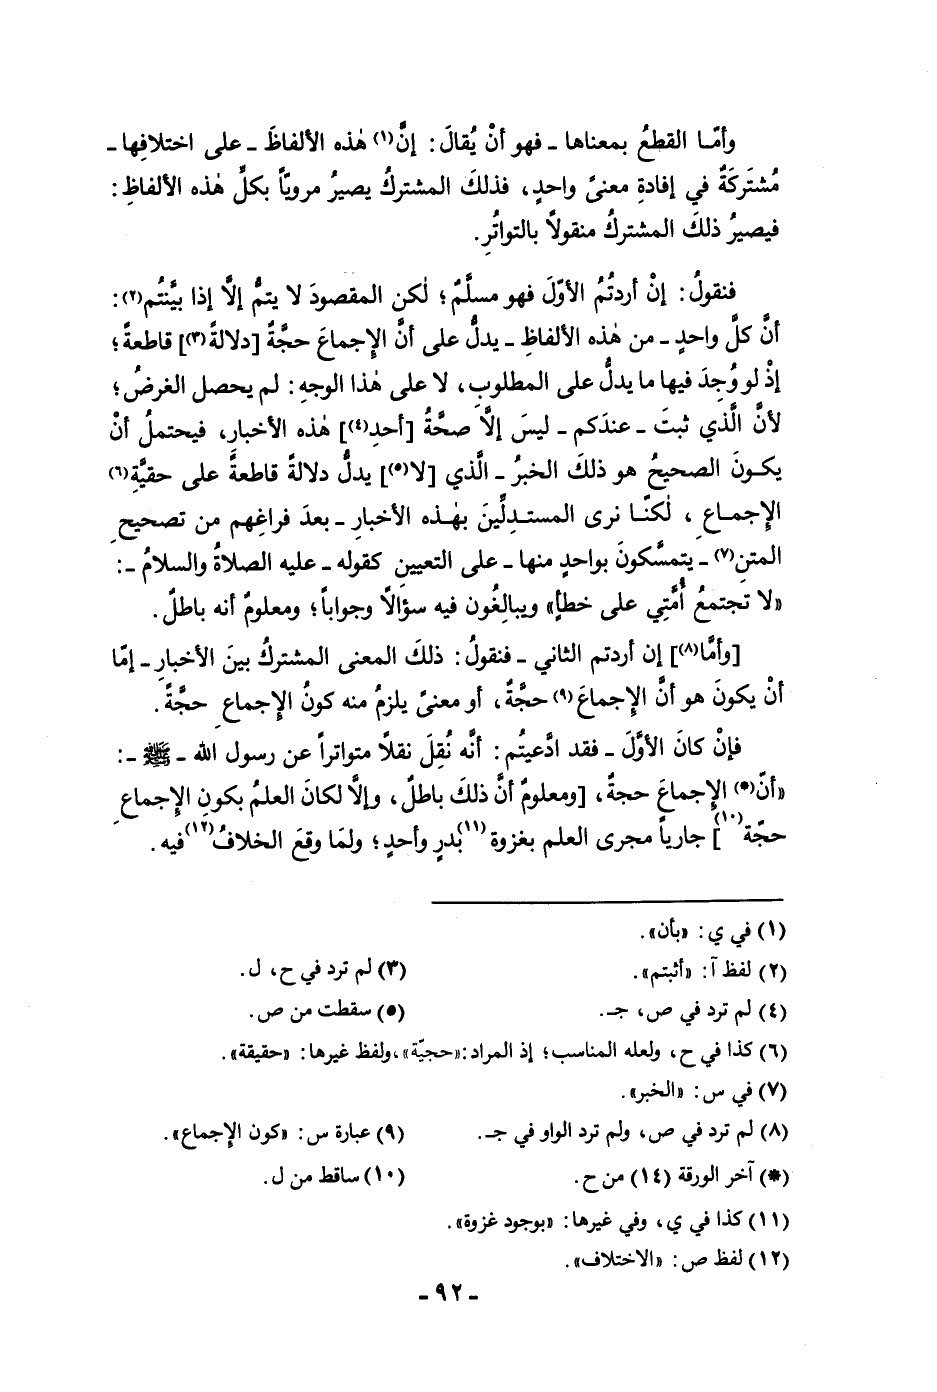 وأمّا القطعُ بمعناها ـ فهو أنْ يُقالَ: إنَّ(١) هٰذه الألفاظَ ـ على اختلافِها ـ
مُشتَركَةٌ في إفادةِ معنىً واحدٍ، فذلكَ المشتركُ يصيرُ مرويّاً بكلِّ هٰذه الألفاظِ:
فيصيرُ ذلكَ المشتركُ منقولاً بالتواتُرِ.
فنقولُ: إنْ أردتُمُ الأوّلَ فهو مسلَّمٌ؛ لٰكن المقصودَ لا يتمُّ إلَّا إذا بيَّنتُم(٢):
أنَّ كلَّ واحدٍ ـ من هٰذه الألفاظِ ـ يدلُّ على أنَّ الإِجماعَ حجَّةٌ [دلالةً(٣)] قاطعةً؛
إذْ لو وُجِدَ فيها ما يدلُّ على المطلوبِ، لا على هٰذا الوجهِ: لم يحصل الغرضُ؛
لأنَّ الَّذي ثبتَ ـ عندَكم ـ ليسَ إلَّا صحَّةُ [أحدِ(٤)] هٰذه الأخبارِ، فيحتملُ أنْ
يكـونَ الصحيحُ هو ذلكَ الخبرُ ـ الَّذي [لا(٥)] يدلُّ دلالةً قاطعةً على حقيَّةِ(٦)
الإِجمـاعِ، لٰكنّـا نرى المستـدِلِّينَ بهٰـذه الأخبارِ ـ بعدَ فراغِهم من تصحيحِ
المتنِ(٧) ـ يتمسَّكونَ بواحدٍ منها ـ على التعيينِ كقوله ـ عليه الصلاةُ والسلامُ ـ:
«لا تجتمعُ أُمَّتِي على خطأٍ» ويبالِغُون فيه سؤالاً وجواباً؛ ومعلومٌ أنه باطلٌ.
[وأمَّا(٨)] إن أردتم الثاني ـ فنقولُ: ذلكَ المعنى المشتركُ بينَ الأخبارِ ـ إمّا
أنْ يكونَ هو أنَّ الإِجماعَ(٩) حجَّةٌ، أو معنىً يلزمُ منه كونُ الإِجماعِ حجَّةً.
فإنْ كانَ الأوَّلَ ـ فقد ادَّعيتُم: أنَّه نُقِلَ نقلاً متواتراً عن رسول الله ـ ﷺ ـ:
«أنّ(*) الإِجماعَ حجةٌ، [ومعلومٌ أنَّ ذلكَ باطلٌ، وإلَّا لكانَ العلمُ بكونِ الإِجماعِ
حجّة(١٠)] جارياً مجرى العلم بغزوة(١١) بدرٍ وأحدٍ؛ ولمَا وقعَ الخلافُ(١٢) فيه.
(١) في ي: «بأن».
(٢) لفظ آ: «أثبتم».
(٣) لم ترد في ح، ل.
(٤) لم ترد في ص، جـ.
(٥) سقطت من ص.
(٦) كذا في ح، ولعله المناسب؛ إذ المراد: «حجيّة»، ولفظ غيرها: «حقيقة».
(٧) في س: «الخبر».
(٨) لم ترد في ص، ولم ترد الواو في جـ.
(٩) عبارة س: «كون الإِجماع».
(*) آخر الورقة (١٤) من ح.
(١٠) ساقط من ل.
(١١) كذا في ي، وفي غيرها: «بوجود غزوة».
(١٢) لفظ ص: «الاختلاف».
ـ ٩٢ ـ